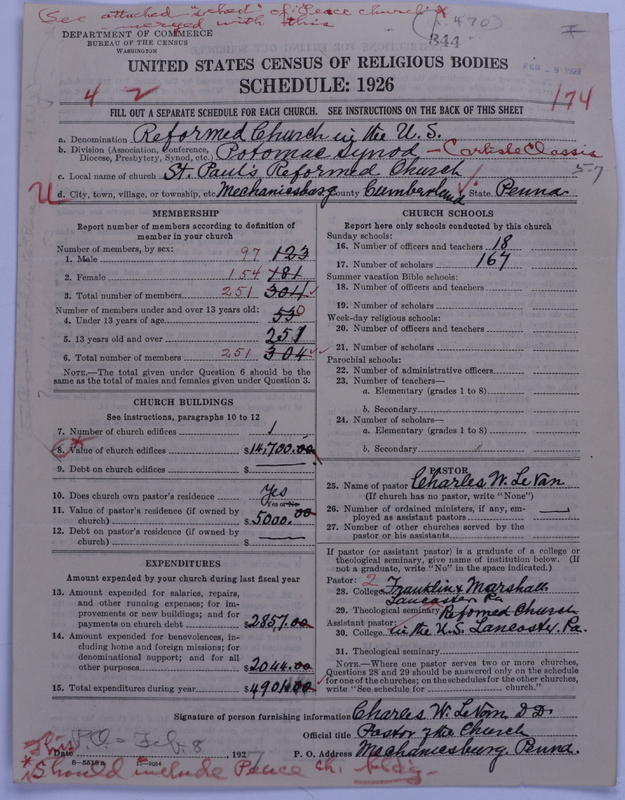 (See attached "sched" of Peace church &
merged with this
(1-470)
B44
DEPARTMENT OF COMMERCE
BUREAU OF THE CENSUS
WASHINGTON
UNITED STATES CENSUS OF RELIGIOUS BODIES
SCHEDULE: 1926
4 2
174
FILL OUT A SEPARATE SCHEDULE FOR EACH CHURCH. SEE INSTRUCTIONS ON THE BACK OF THIS SHEET
a. Denomination Reformed Church in the U.S.
b. Division (Association, Conference, Diocese, Presbytery, Synod, etc.) Potomac Synod - Carlisle Classis
c. Local name of church St. Paul's Reformed Church 57
U d. City, town, village, or township, etc. Mechanicsburg County Cumberland State Penna.
MEMBERSHIP
Report number of members according to definition of
member in your church
Number of members, by sex:
1. Male 97 123
2. Female 154 181
3. Total number of members 251 304
Number of members under and over 13 years old:
4. Under 13 years of age 53 0
5. 13 years old and over 251
6. Total number of members 251 304
NOTE.—The total given under Question 6 should be
same as the total of males and females given under Question 3.
CHURCH BUILDINGS
See instructions, paragraphs 10 to 12
7. Number of church edifices 1
8. Value of church edifices $14,700.00
9. Debt on church edifices $
10. Does church own pastor's residence Yes
Yes or No
11. Value of pastor's residence (if owned by
church) $5000.00
12. Debt on pastor's residence (if owned by
church) $
EXPENDITURES
Amount expended by your church during last fiscal year
13. Amount expended for salaries, repairs,
and other running expenses; for im-
provements or new buildings; and for
payments on church debt $2857.00
14. Amount expended for benevolences, in-
cluding home and foreign missions; for
denominational support; and for all
other purposes $2044.00
15. Total expenditures during year $4901.00
CHURCH SCHOOLS
Report here only schools conducted by this church
Sunday schools:
16. Number of officers and teachers 18
17. Number of scholars 167
Summer vacation Bible schools:
18. Number of officers and teachers
19. Number of scholars
Week-day religious schools:
20. Number of officers and teachers
21. Number of scholars
Parochial schools:
22. Number of administrative officers
23. Number of teachers—
a. Elementary (grades 1 to 8)
b. Secondary
24. Number of scholars—
a. Elementary (grades 1 to 8)
b. Secondary
PASTOR
25. Name of pastor Charles W. LeVan
(If church has no pastor, write "None")
26. Number of ordained ministers, if any, em-
ployed as assistant pastors
27. Number of other churches served by the
pastor or his assistants
If pastor (or assistant pastor) is a graduate of a college or
theological seminary, give name of institution below. (If
not a graduate, write "No" in the space indicated.)
Pastor: 2
28. College Franklin & Marshall
Lancaster Pa
29. Theological seminary Reformed Church
Assistant pastor:
30. College in the U.S. Lancaster, Pa.
31. Theological seminary
NOTE.—Where one pastor serves two or more churches,
Questions 28 and 29 should be answered only on the schedule
for one of the churches; on the schedules for the other churches,
write "See schedule for church."
Signature of person furnishing information Charles W. LeVan D.D.
Official title Pastor of the Church
Date PO - Feb. 8, 1927 P. O. Address Mechanicsburg, Penna.
8-5518a 11-9054
*Should include Peace Ch. bldg.